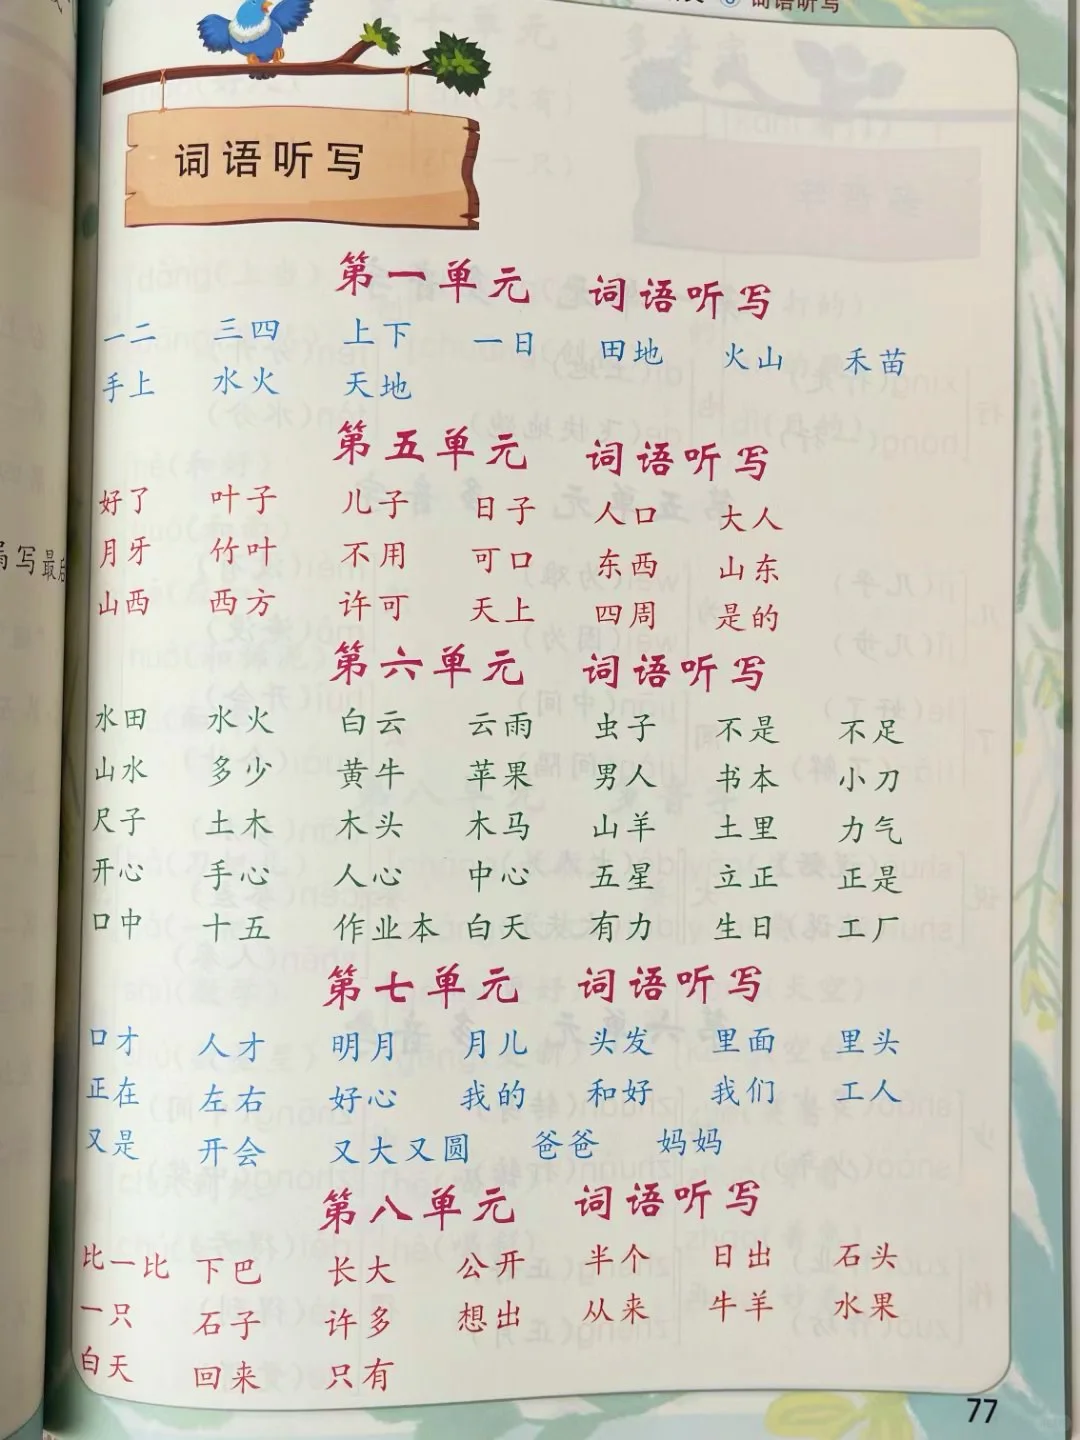 词语听写
词语听写
第一单元 词语听写
一二 三四 上下 一日 田地 火山 禾苗
手上 水火 天地
第五单元 词语听写
好了 叶子 儿子 日子 人口 大人
月牙 竹叶 不用 可口 东西 山东
山西 西方 许可 天上 四周 是的
第六单元 词语听写
水田 水火 白云 云雨 虫子 不是 不足
山水 多少 黄牛 苹果 男人 书本 小刀
尺子 土木 木头 木马 山羊 土里 力气
开心 手心 人心 中心 五星 立正 正是
口中 十五 作业本 白天 有力 生日 工厂
第七单元 词语听写
口才 人才 明月 月儿 头发 里面 里头
正在 左右 好心 我的 和好 我们 工人
又是 开会 又大又圆 爸爸 妈妈
第八单元 词语听写
比一比 下巴 长大 公开 半个 日出 石头
一只 石子 许多 想出 从来 牛羊 水果
白天 回来 只有
77
写最后